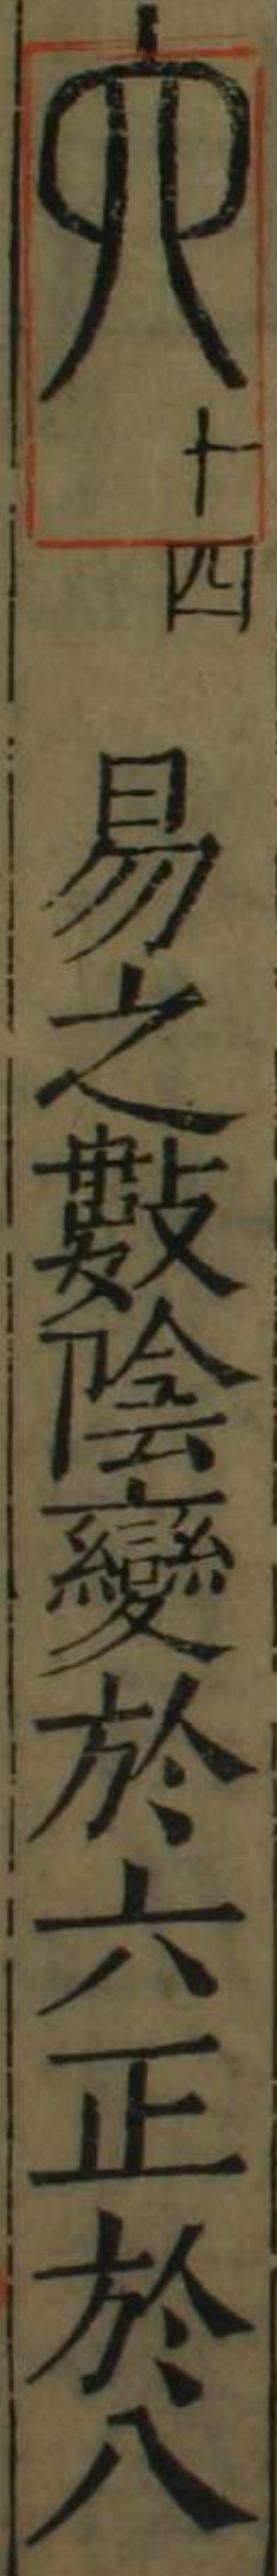 六十四易之數陰變於六正於八